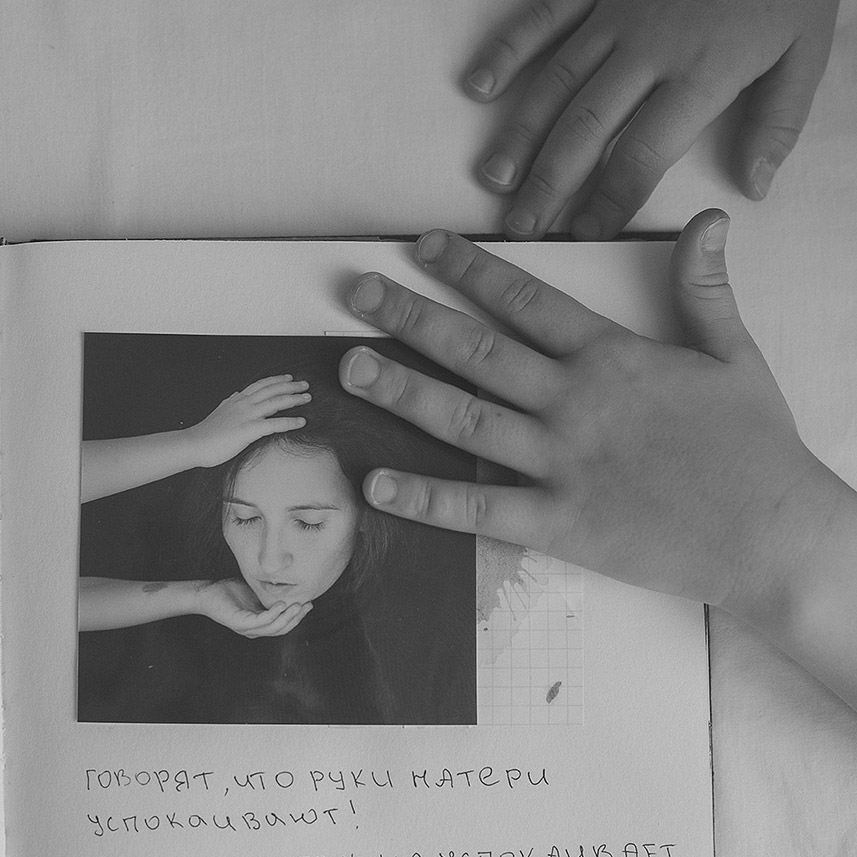 ГОВОРЯТ, ЧТО РУКИ МАТЕРИ
УСПОКАИВАЮТ!
УСПОКАИВАЕТ